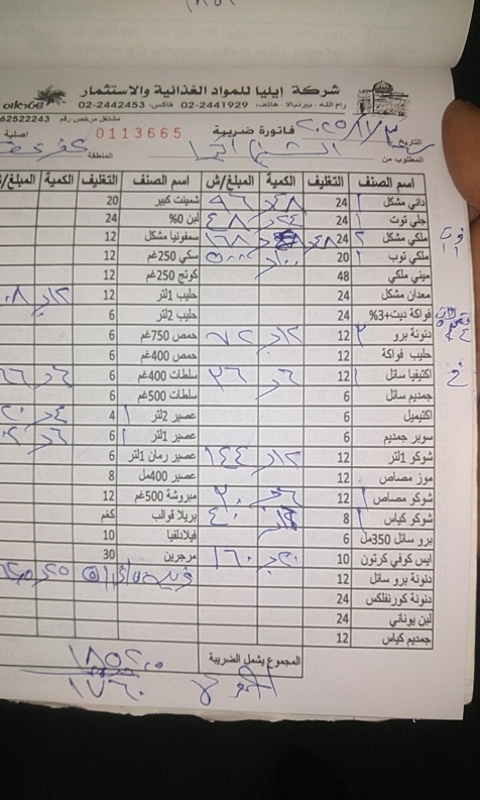 شركة إيليا للمواد الغذائية والاستثمار
رام الله - بيرنبالا - هاتف: 02-2441929 فاكس: 02-2442453
مشتغل مرخص رقم 62522243
فاتورة ضريبية 0113665 اصلية
التاريخ ٢٠٢٥/١/٣
المطلوب من المنطقة
اسم الصنف التغليف الكمية المبلغ/ش اسم الصنف التغليف الكمية المبلغ/ش
داني مشكل 24 ٤٨د ٩٦ شمينت كبير 20
جلي توت 24 ٢٤د ٤٨ لبن 0% 24
ملكي مشكل 24 ٤٨د ١٦٨ سمفونيا مشكل 12
ملكي توب 20 ١٠٠د ٥٠٠ سكي 250غم 12
ميني ملكي 48 كوتج 250غم 12
معدان مشكل 24 حليب 1لتر 12 ١٢د
فواكة ديت+3% 24 حليب 2لتر 6
دنونة برو 12 ١٢د ٧٢ حمص 750غم 6
حليب فواكة 12 حمص 400غم 6
اكتيفيا سائل 12 ٦د ٣٦ سلطات 400غم 6 ٦د
جمديم سائل 6 سلطات 500غم 6
اكتيميل 6 عصير 2لتر 4 ٤د
سوبر جمديم 6 عصير 1لتر 6 ٦د
شوكو 1لتر 12 ١٢د ١٤٤ عصير رمان 1لتر 6
موز مصاص 12 عصير 400مل 8
شوكو مصاص 12 ٦د ٣٠ مبروشة 500غم 12
شوكو كياس 8 ٤٠ بريلا قوالب كغم
برو سائل 350مل 6 فيلادلفيا 10
ايس كوفي كرتون 10 ٢٠د ١٦٠ مرجرين 30
دنونة برو سائل 12
دنونة كورنفلكس 24
لبن يوناني 24
جمديم كياس 12
المجموع يشمل الضريبة ١٨٥٢
١٧٦٠